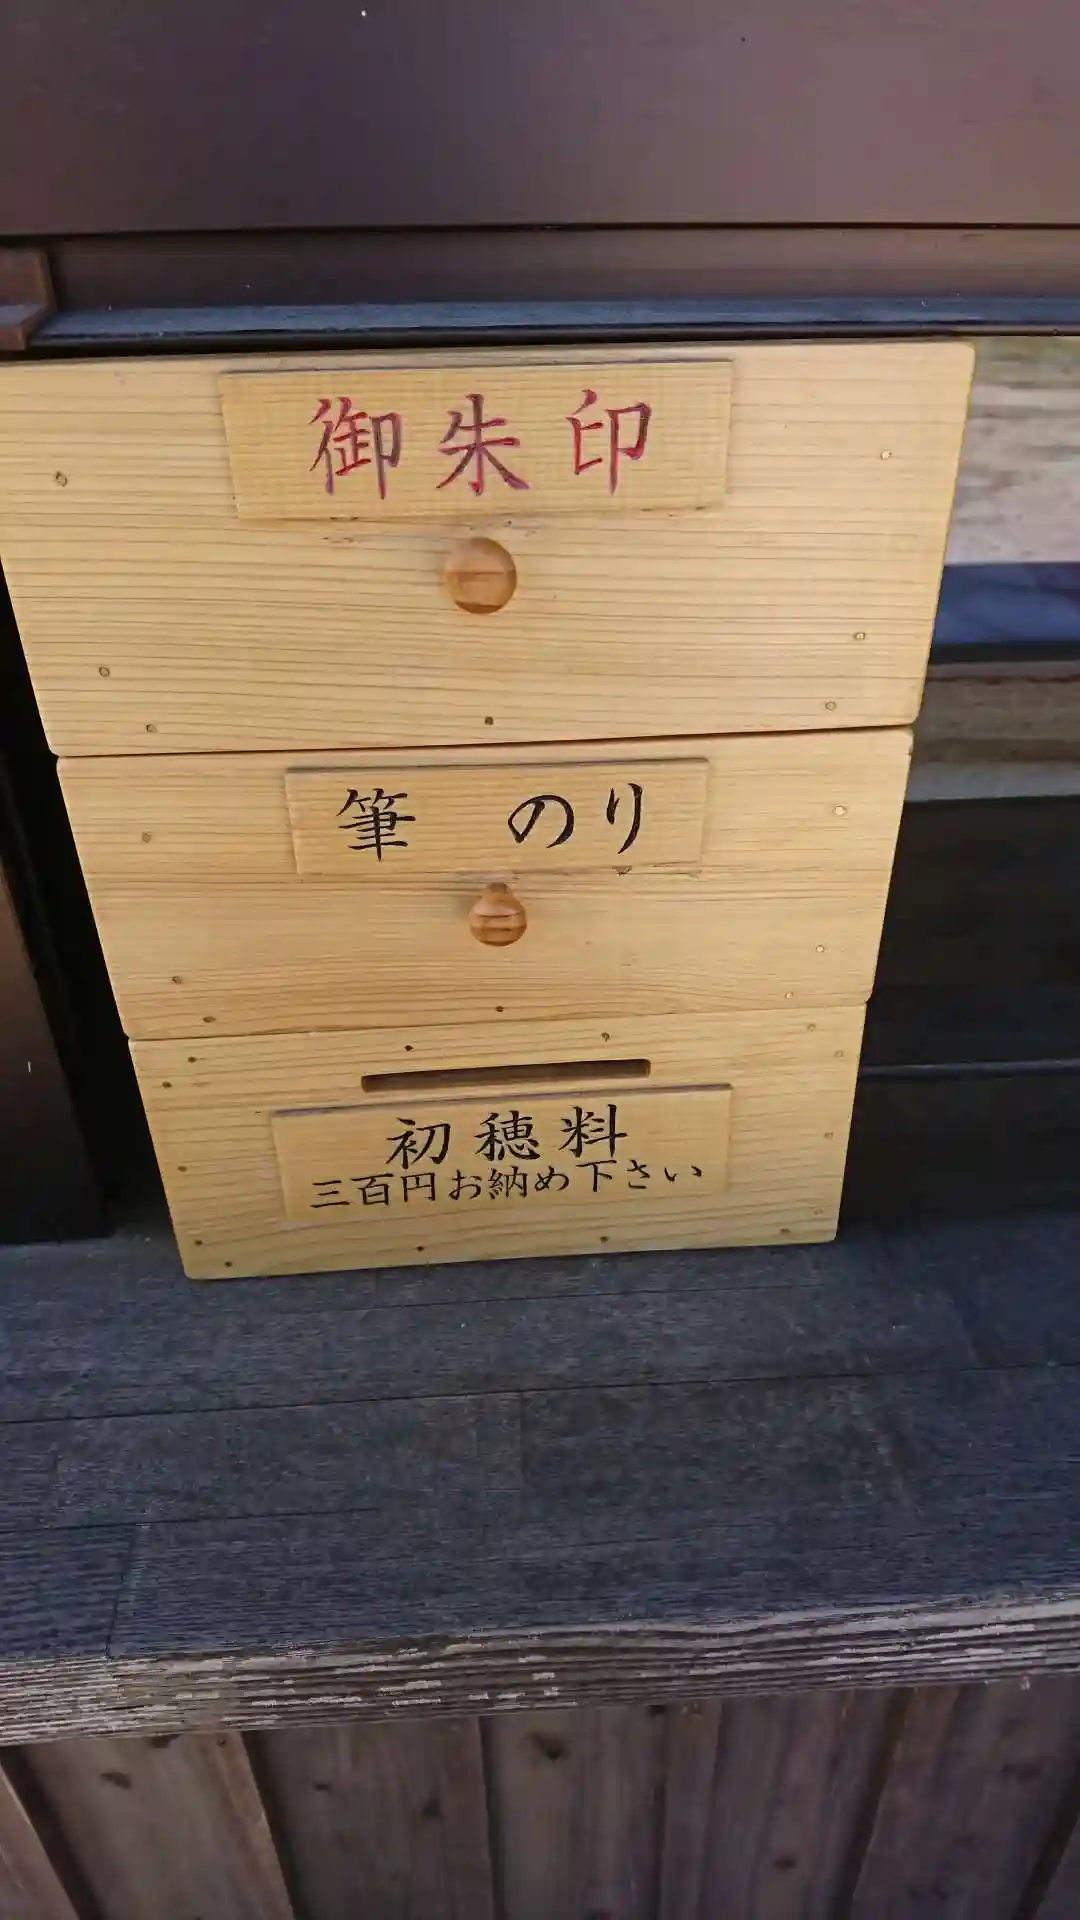 御朱印
筆 のり
初穂料
三百円お納め下さい